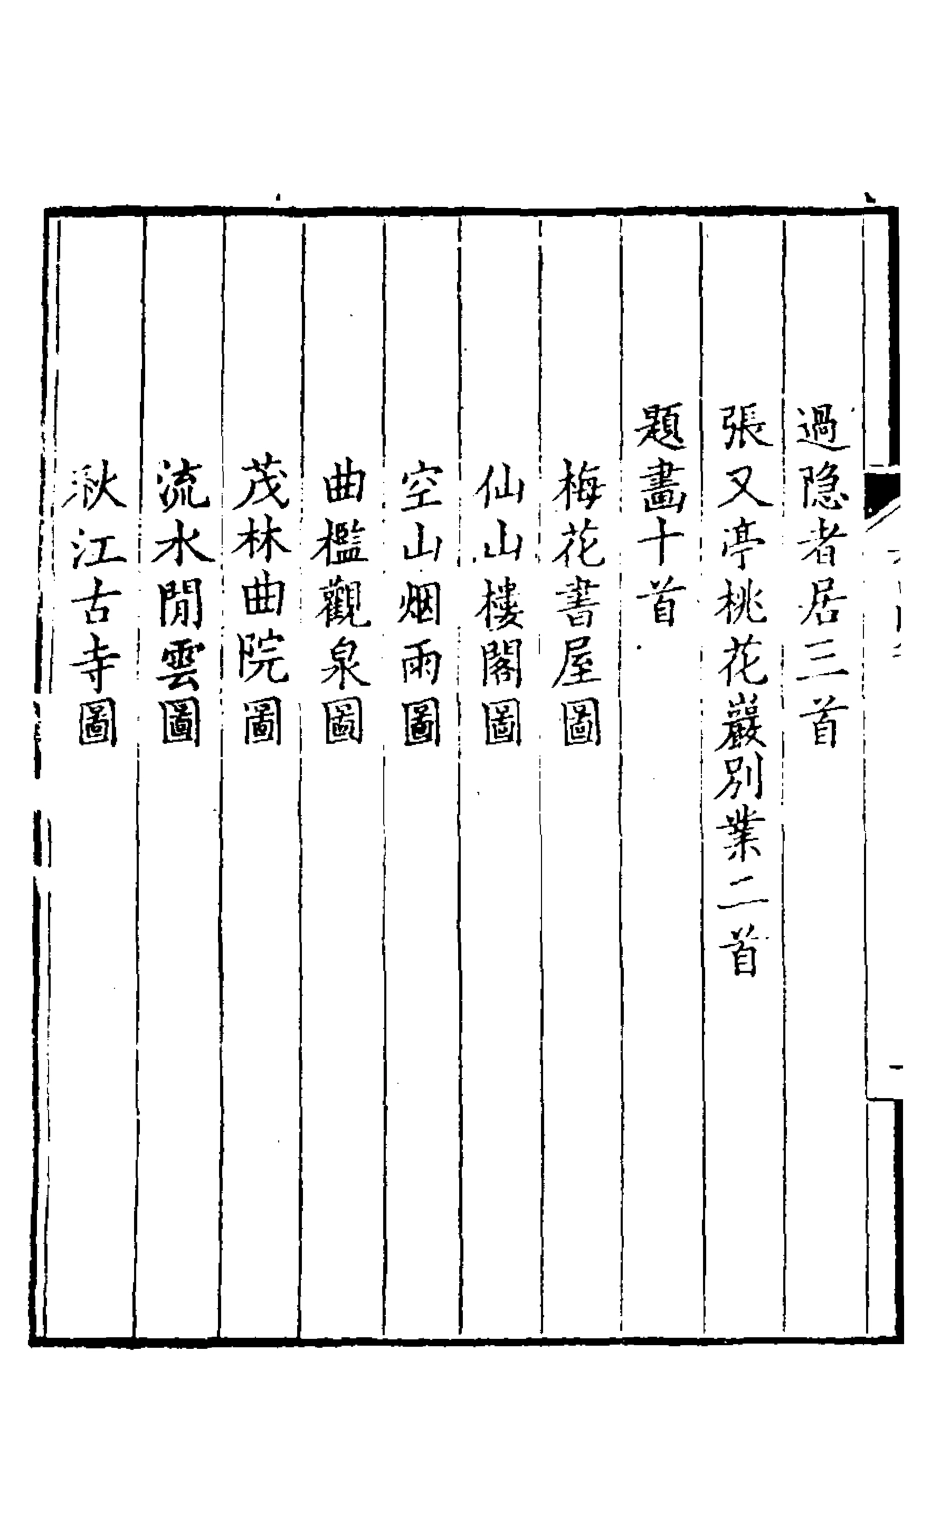 過隐者居三首
張又亭桃花巖別業二首
題畫十首
梅花書屋圖
仙山樓閣圖
空山烟雨圖
曲檻觀泉圖
茂林曲院圖
流水閒雲圖
秋江古寺圖